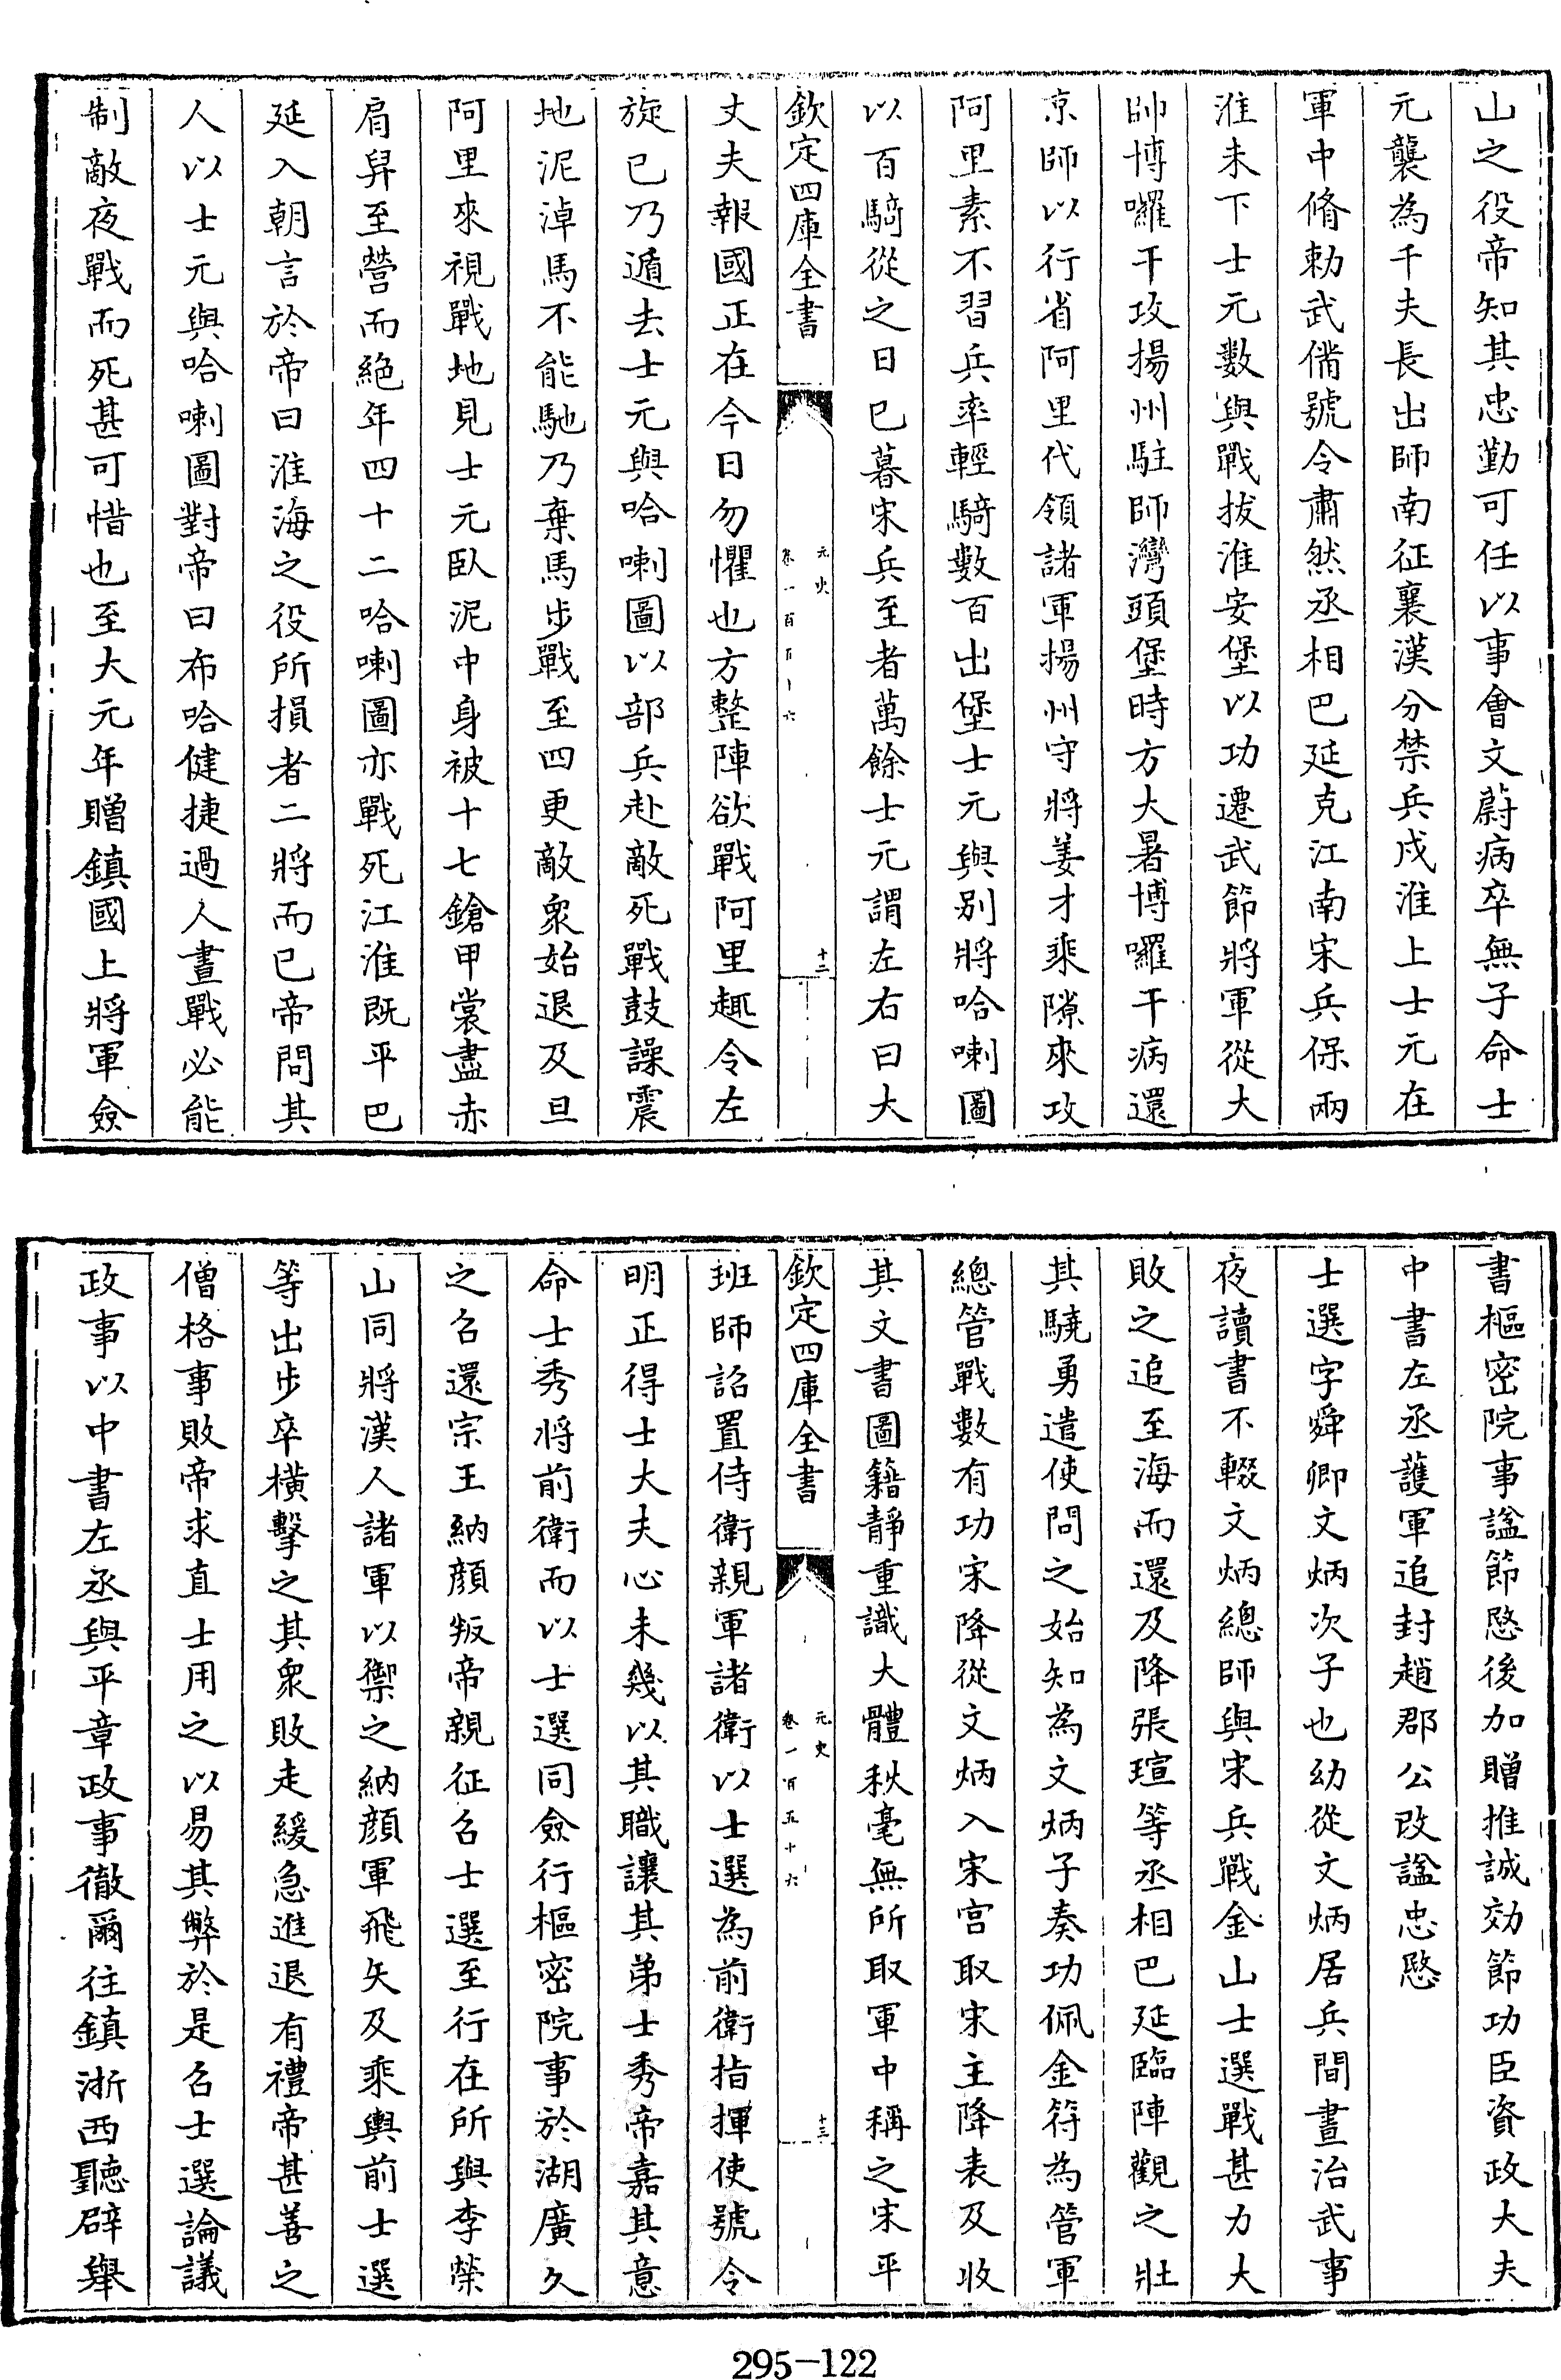 山之役帝知其忠勤可任以事會文蔚病卒無子命士
元襲為千夫長出師南征襄漢分禁兵戍淮上士元在
軍中脩勅武備號令肅然丞相巴延克江南宋兵保兩
淮未下士元數與戰拔淮安堡以功遷武節將軍從大
帥博囉干攻揚州駐師灣頭堡時方大暑博囉干病還
京師以行省阿里代領諸軍揚州守將姜才乘隙來攻
阿里素不習兵率輕騎數百出堡士元與別將哈喇圖
以百騎從之日已暮宋兵至者萬餘士元謂左右曰大
欽定四庫全書
元史
卷一百
十六
十二
丈夫報國正在今日勿懼也方整陣欲戰阿里趣令左
旋已乃遁去士元與哈喇圖以部兵赴敵死戰鼓譟震
地泥淖馬不能馳乃棄馬步戰至四更敵衆始退及旦
阿里來視戰地見士元臥泥中身被十七鎗甲裳盡赤
肩舁至營而絶年四十二哈喇圖亦戰死江淮既平巴
延入朝言於帝曰淮海之役所損者二將而已帝問其
人以士元與哈喇圖對帝曰布哈健捷過人晝戰必能
制敵夜戰而死甚可惜也至大元年贈鎮國上將軍僉
書樞密院事諡節愍後加贈推誠効節功臣資政大夫
中書左丞護軍追封趙郡公改諡忠愍
士選字舜卿文炳次子也幼從文炳居兵間晝治武事
夜讀書不輟文炳總師與宋兵戰金山士選戰甚力大
敗之追至海而還及降張瑄等丞相巴延臨陣觀之壯
其驍勇遣使問之始知為文炳子奏功佩金符為管軍
總管戰數有功宋降從文炳入宋宫取宋主降表及收
其文書圖籍靜重識大體秋毫無所取軍中稱之宋平
欽定四庫全書
元史
卷一百五十六
十三
班師詔置侍衛親軍諸衛以士選為前衛指揮使號令
明正得士大夫心未幾以其職讓其弟士秀帝嘉其意
命士秀將前衛而以士選同僉行樞密院事於湖廣久
之召還宗王納顔叛帝親征召士選至行在所與李榮
山同將漢人諸軍以禦之納顔軍飛矢及乘輿前士選
等出步卒橫擊之其衆敗走緩急進退有禮帝甚善之
僧格事敗帝求直士用之以易其弊於是召士選論議
政事以中書左丞與平章政事徹爾往鎮浙西聽辟舉
295-122